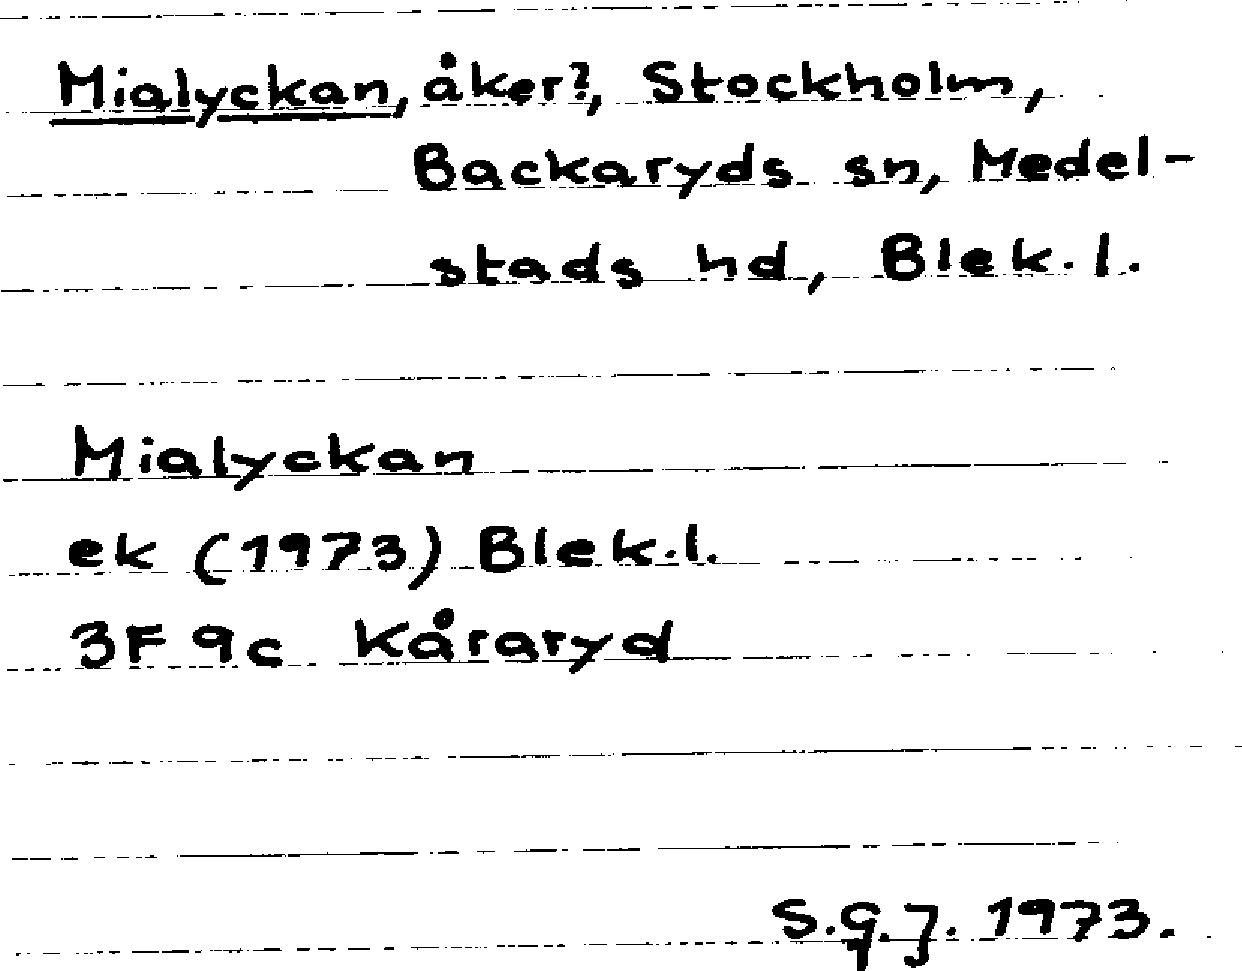 Mialyckan, åker?, Stockholm,
Backaryds sn, Medel-
stads hd, Blek. l.
Mialyckan
ek (1973) Blek.l.
3F 9c Kåraryd
S.G.J. 1973.